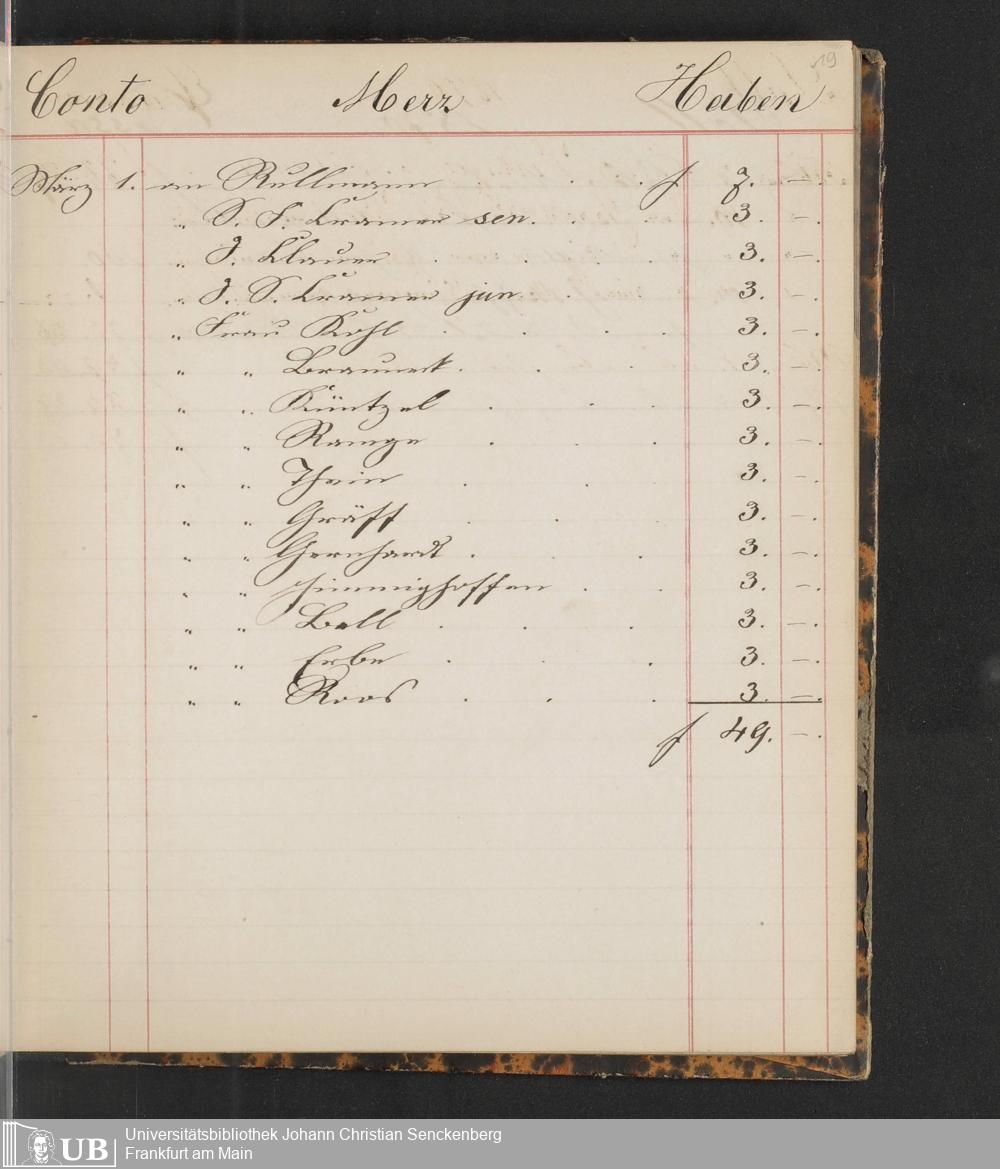 19
Conto Merz Haben
März 1. an Rullmann . . . f 7. —.
„ S. F. Cramer sen. . . 3. —.
„ J. Klauer . . . . 3. —.
„ J. S. Cramer jun. . 3. —.
„ Frau Kohl . . . 3. —.
„ „ Brauneck . . . 3. —.
„ „ Küntzel . . . 3. —.
„ „ Ramge . . . 3. —.
„ „ Thein . . 3. —.
„ „ Gräff . . . 3. —.
„ „ Gernhardt . . . 3. —.
„ „ Himmighoffen . . 3. —.
„ „ Bell . . . 3. —.
„ „ Erbe . . . 3. —.
„ „ Roos . . . 3. —.
f 49. —.
UB
Universitätsbibliothek Johann Christian Senckenberg
Frankfurt am Main